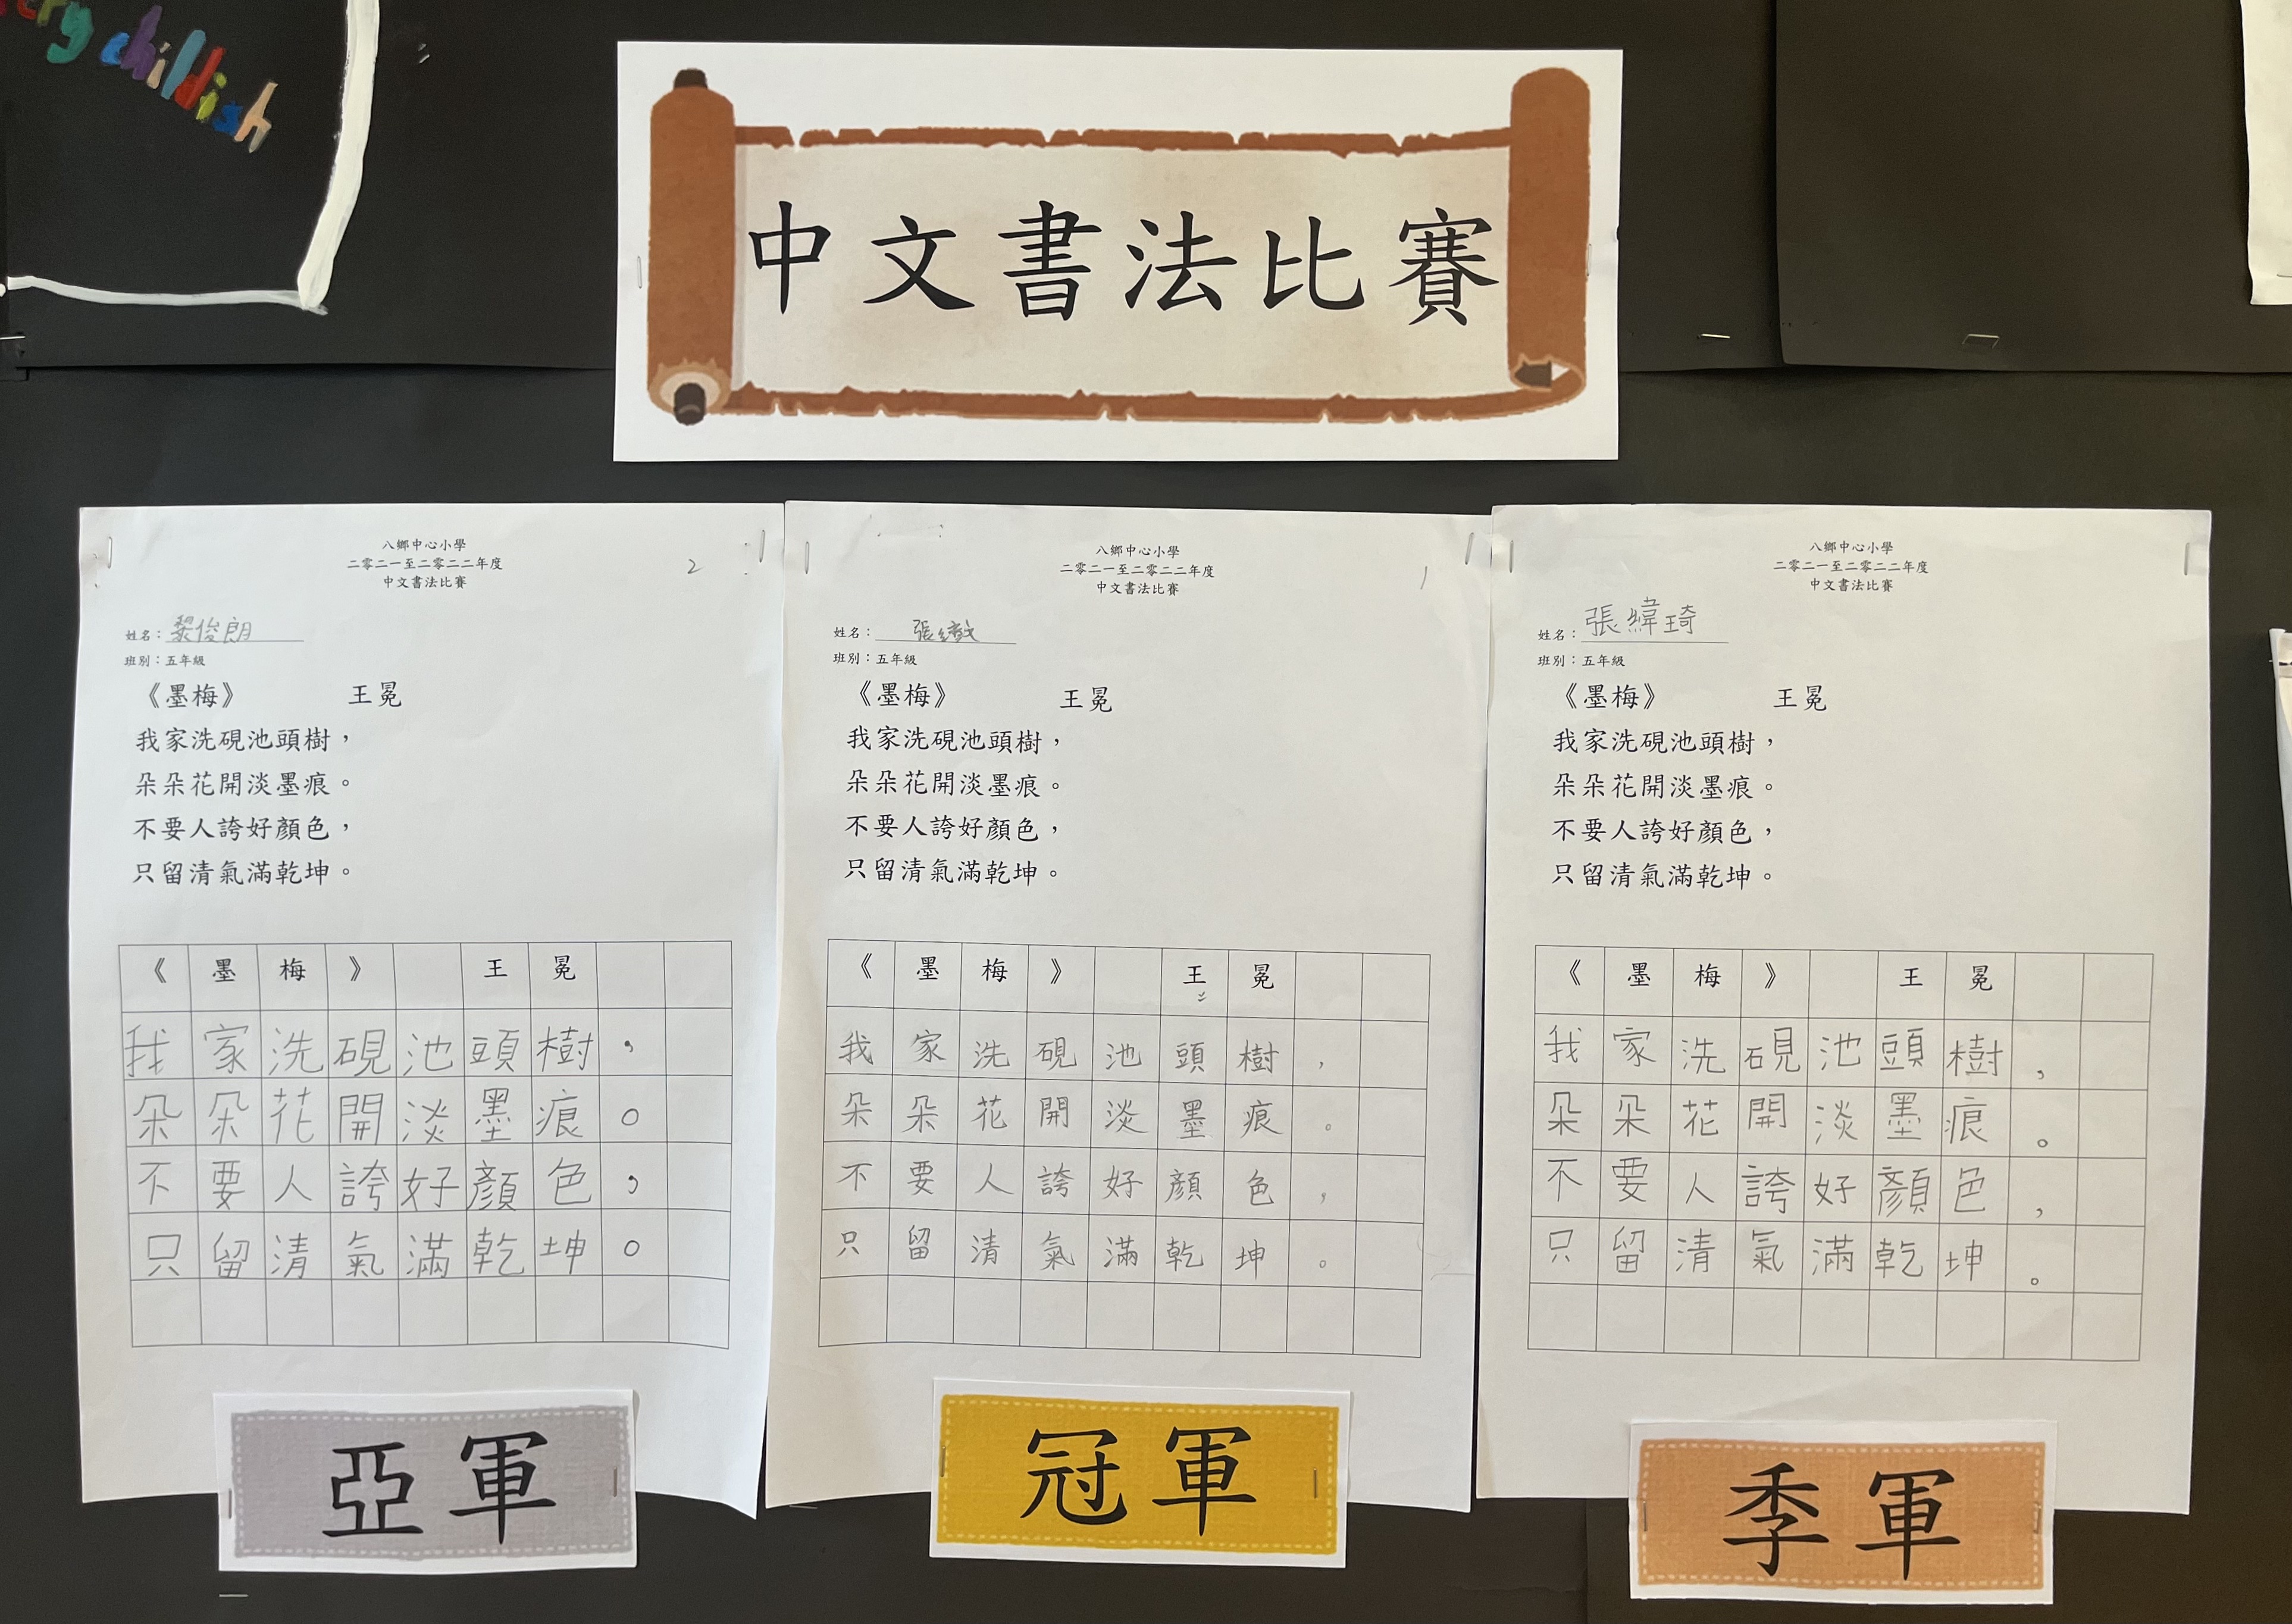 ery childish
中文書法比賽
八鄉中心小學
二零二一至二零二二年度
中文書法比賽
2
姓名：黎俊朗
班別：五年級
《墨梅》 王冕
我家洗硯池頭樹，
朵朵花開淡墨痕。
不要人誇好顏色，
只留清氣滿乾坤。
《墨梅》 王冕
我家洗硯池頭樹，
朵朵花開淡墨痕。
不要人誇好顏色，
只留清氣滿乾坤。
亞軍
八鄉中心小學
二零二一至二零二二年度
中文書法比賽
1
姓名：張
班別：五年級
《墨梅》 王冕
我家洗硯池頭樹，
朵朵花開淡墨痕。
不要人誇好顏色，
只留清氣滿乾坤。
《墨梅》 王冕
我家洗硯池頭樹，
朵朵花開淡墨痕。
不要人誇好顏色，
只留清氣滿乾坤。
冠軍
八鄉中心小學
二零二一至二零二二年度
中文書法比賽
姓名：張緯琦
班別：五年級
《墨梅》 王冕
我家洗硯池頭樹，
朵朵花開淡墨痕。
不要人誇好顏色，
只留清氣滿乾坤。
《墨梅》 王冕
我家洗硯池頭樹，
朵朵花開淡墨痕。
不要人誇好顏色，
只留清氣滿乾坤。
季軍